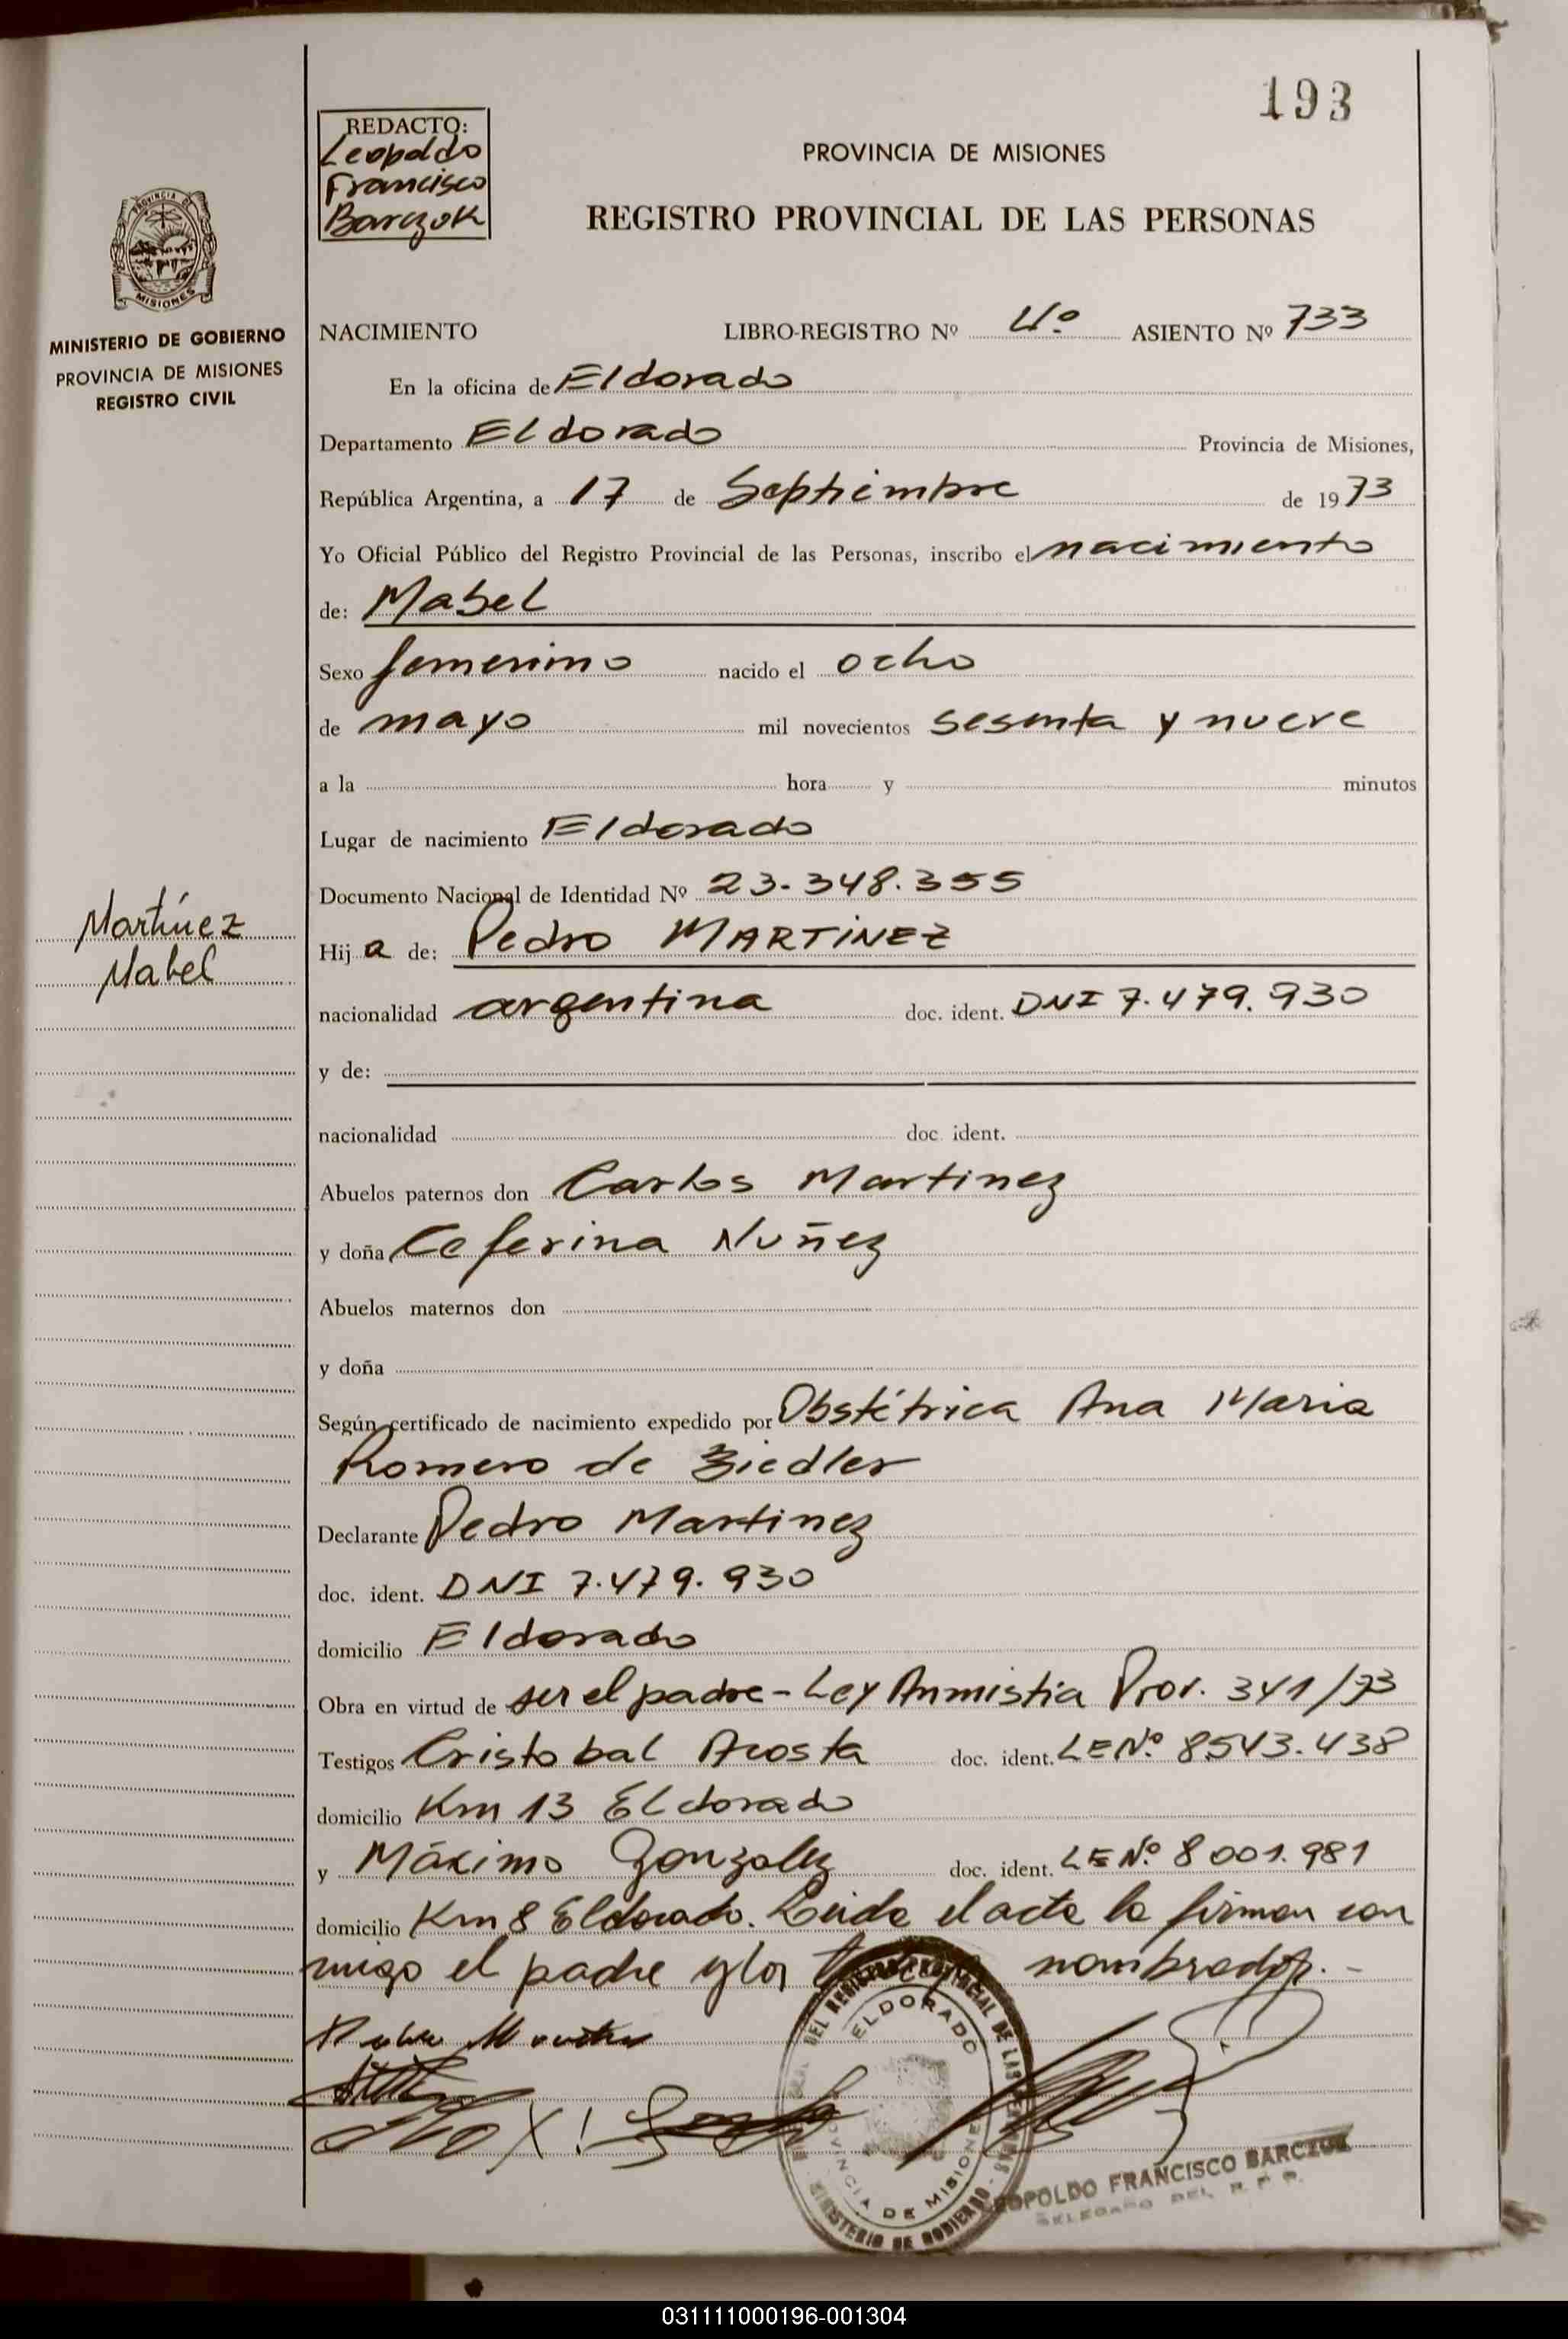 193
REDACTO:
Leopoldo
Francisco
Barczuk
PROVINCIA DE MISIONES
REGISTRO PROVINCIAL DE LAS PERSONAS
PROVINCIA DE
MISIONES
MINISTERIO DE GOBIERNO
PROVINCIA DE MISIONES
REGISTRO CIVIL
NACIMIENTO LIBRO-REGISTRO Nº 4º ASIENTO Nº 733
En la oficina de Eldorado
Departamento Eldorado Provincia de Misiones,
República Argentina, a 17 de Septiembre de 1973
Yo Oficial Público del Registro Provincial de las Personas, inscribo el nacimiento
de: Mabel
Sexo femenino nacido el ocho
de mayo mil novecientos sesenta y nueve
a la hora y minutos
Lugar de nacimiento Eldorado
Documento Nacional de Identidad Nº 23.348.355
Martínez
Mabel
Hija de: Pedro MARTINEZ
nacionalidad argentina doc. ident. DNI 7.479.930
y de:
nacionalidad doc. ident.
Abuelos paternos don Carlos Martinez
y doña Ceferina Nuñez
Abuelos maternos don
y doña
Según certificado de nacimiento expedido por Obstétrica Ana Maria
Romero de Ziedler
Declarante Pedro Martinez
doc. ident. DNI 7.479.930
domicilio Eldorado
Obra en virtud de ser el padre - Ley Anmistia Prov. 341/73
Testigos Cristobal Acosta doc. ident. LE Nº 8543.438
domicilio Km 13 Eldorado
y Máximo Gonzalez doc. ident. LE Nº 8001.981
domicilio Km 8 Eldorado. Leida el acta la firman con
migo el padre y los nombrados. -
DEL REGISTRO PROVINCIAL DE LAS PERSONAS
ELDORADO
PROVINCIA DE MISIONES
MINISTERIO DE GOBIERNO
LEOPOLDO FRANCISCO BARCZUK
DELEGADO DEL R. P. P.
031111000196-001304